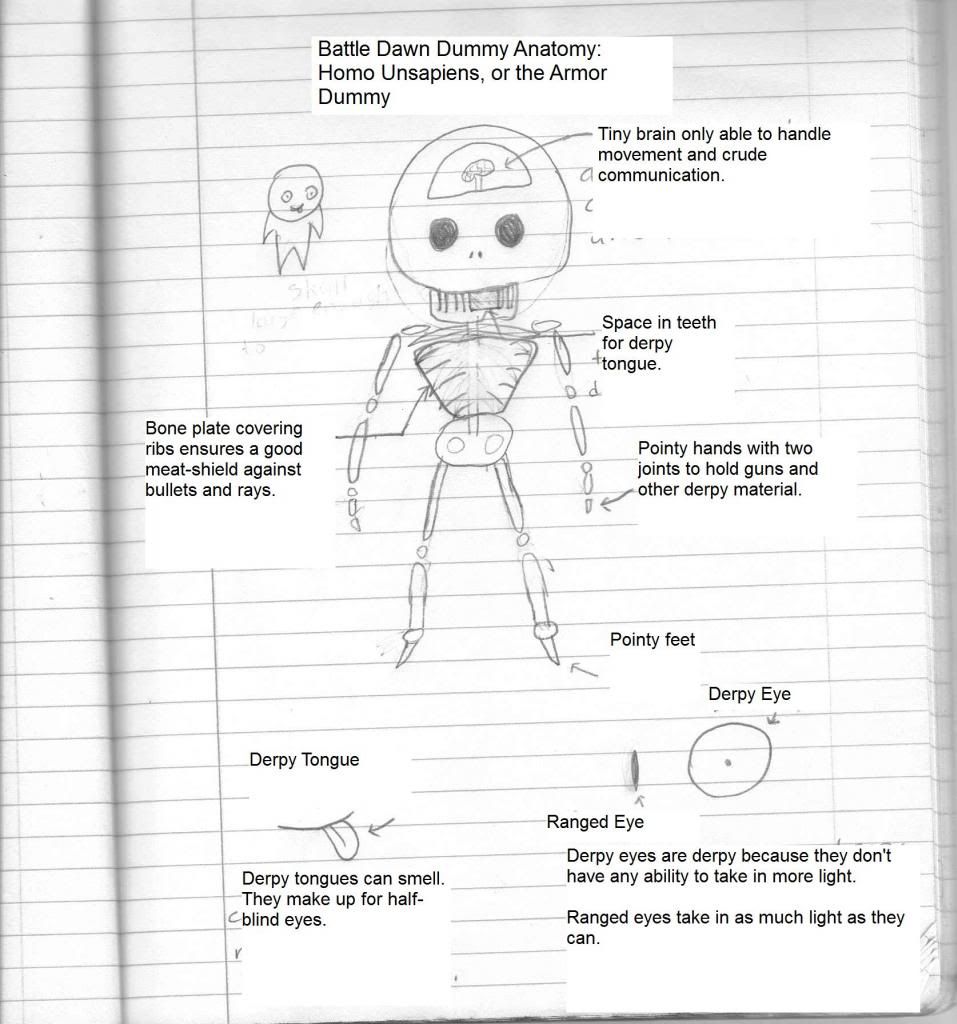 Battle Dawn Dummy Anatomy:
Homo Unsapiens, or the Armor
Dummy
Tiny brain only able to handle
movement and crude
communication.
skull
Space in teeth
for derpy
tongue.
to
d
Bone plate covering
ribs ensures a good
meat-shield against
bullets and rays.
Pointy hands with two
joints to hold guns and
other derpy material.
Pointy feet
Derpy Eye
Derpy Tongue
Ranged Eye
Derpy tongues can smell.
They make up for half-
blind eyes.
Derpy eyes are derpy because they don't
have any ability to take in more light.
Ranged eyes take in as much light as they
can.